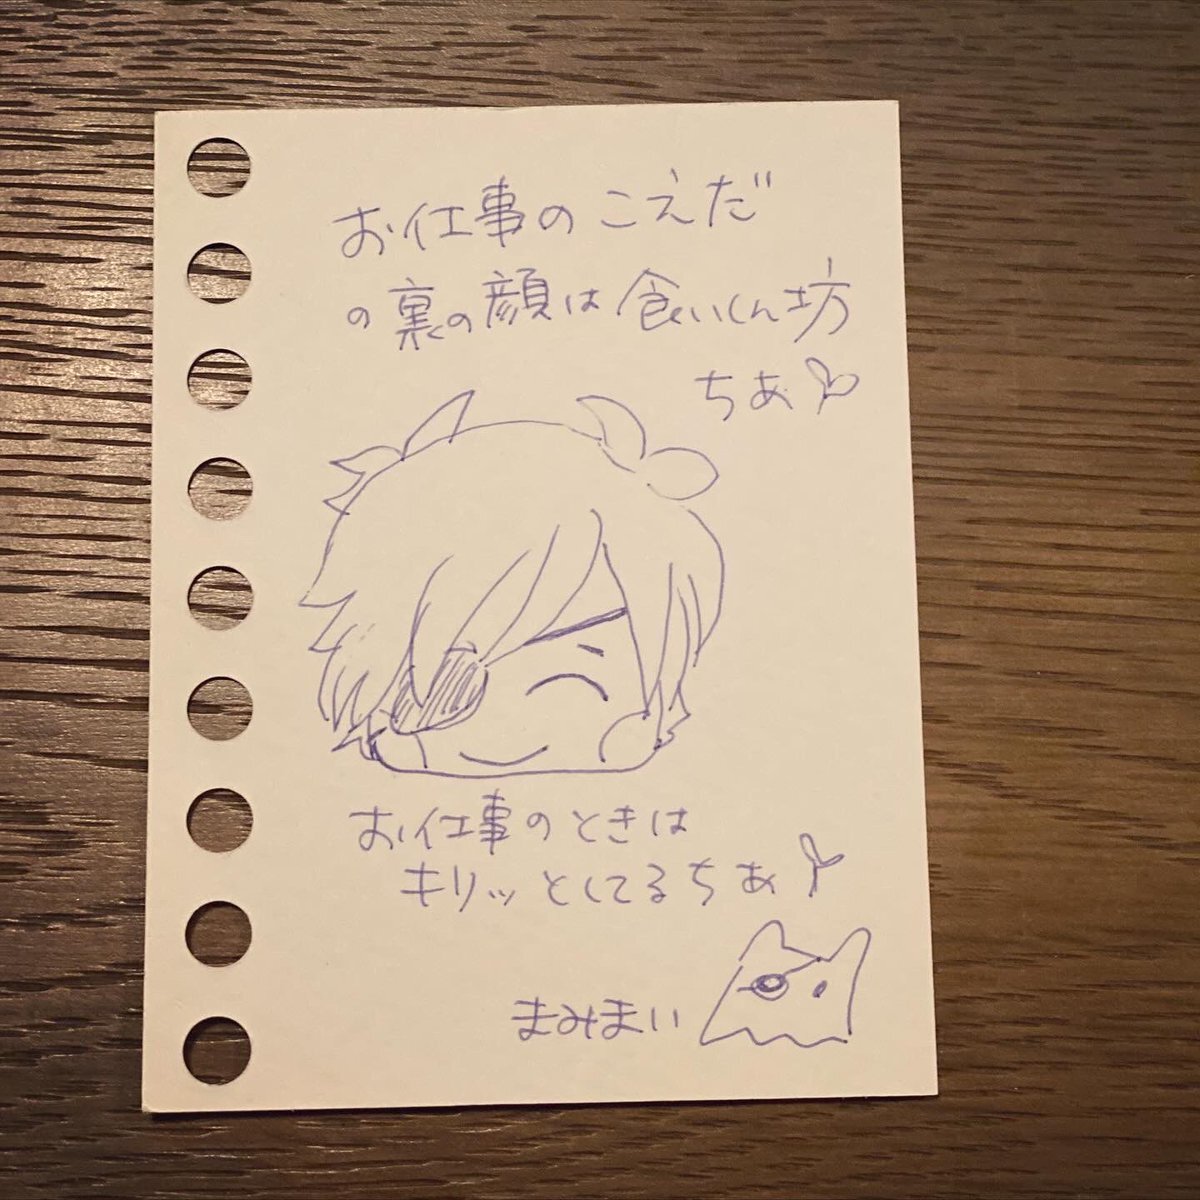 お仕事のこえだ
の裏の顔は食いしん坊
ちあ
お仕事のときは
キリッとしてるちあ
まみまい